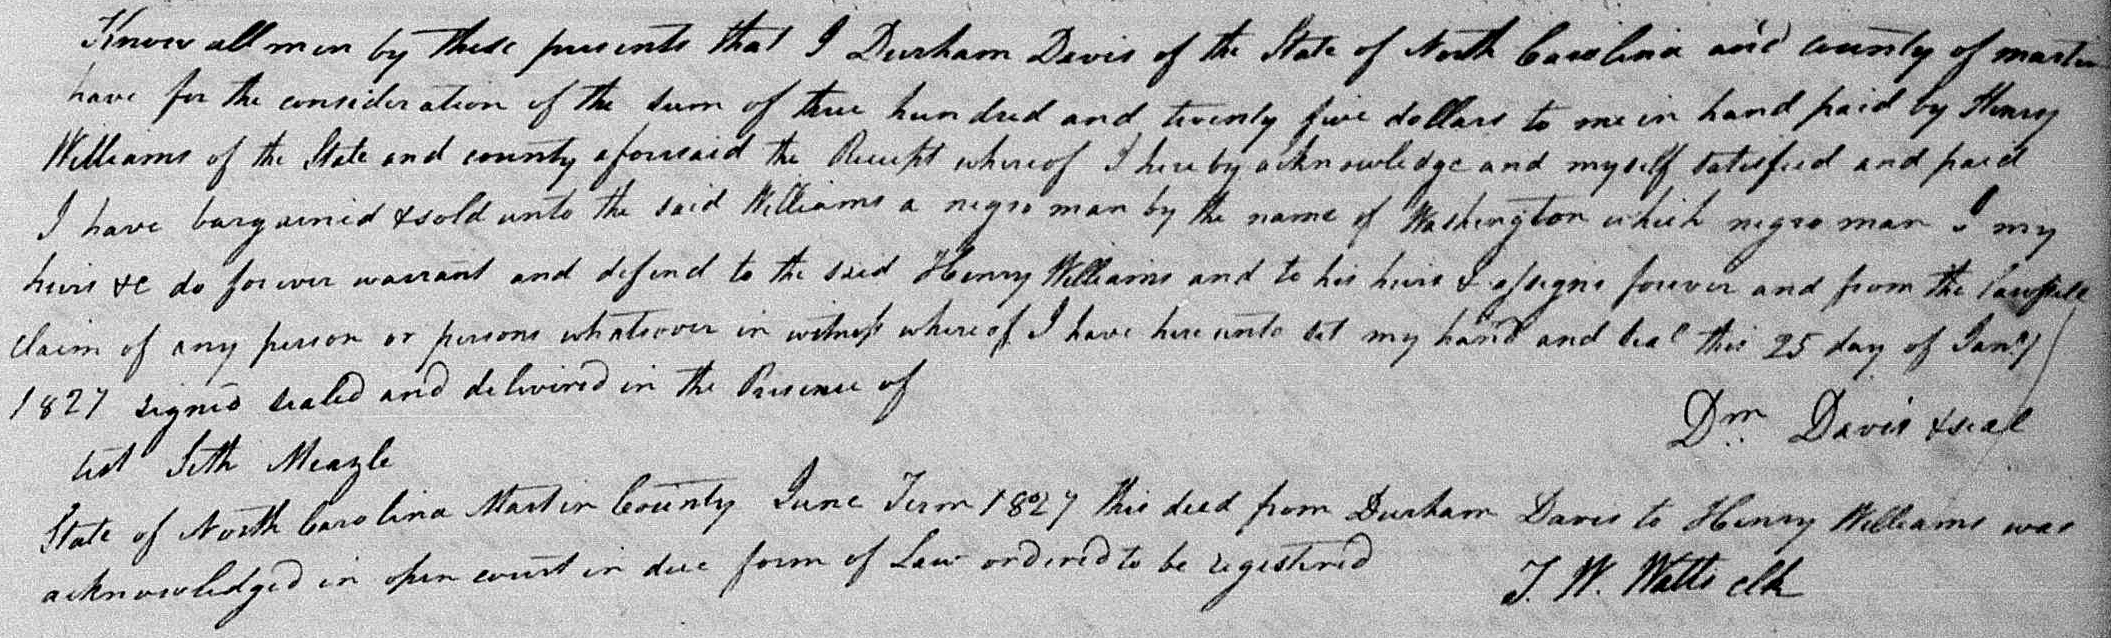 Know all men by these presents that I Durham Davis of the State of North Carolina and county of martin
have for the consideration of the sum of three hundred and twenty five dollars to me in hand paid by Henry
Williams of the State and county aforesaid the Receipt whereof I hereby acknowledge and myself satisfied and paid
I have bargained & sold unto the said Williams a negro man by the name of Washington which negro man I my
heirs &c do forever warrant and defend to the said Henry Williams and to his heirs & assigns forever and from the lawfull
claim of any person or persons whatsover in witness whereof I have hereunto set my hand and seal this 25 day of Jany
1827 signed sealed and delivered in the Presence of
Dm Davis & seal
test Seth Meazle
State of North Carolina Martin County June Term 1827 this deed from Durham Davis to Henry Williams was
acknowledged in open court in due form of Law ordered to be registered
T. W. Watts clk